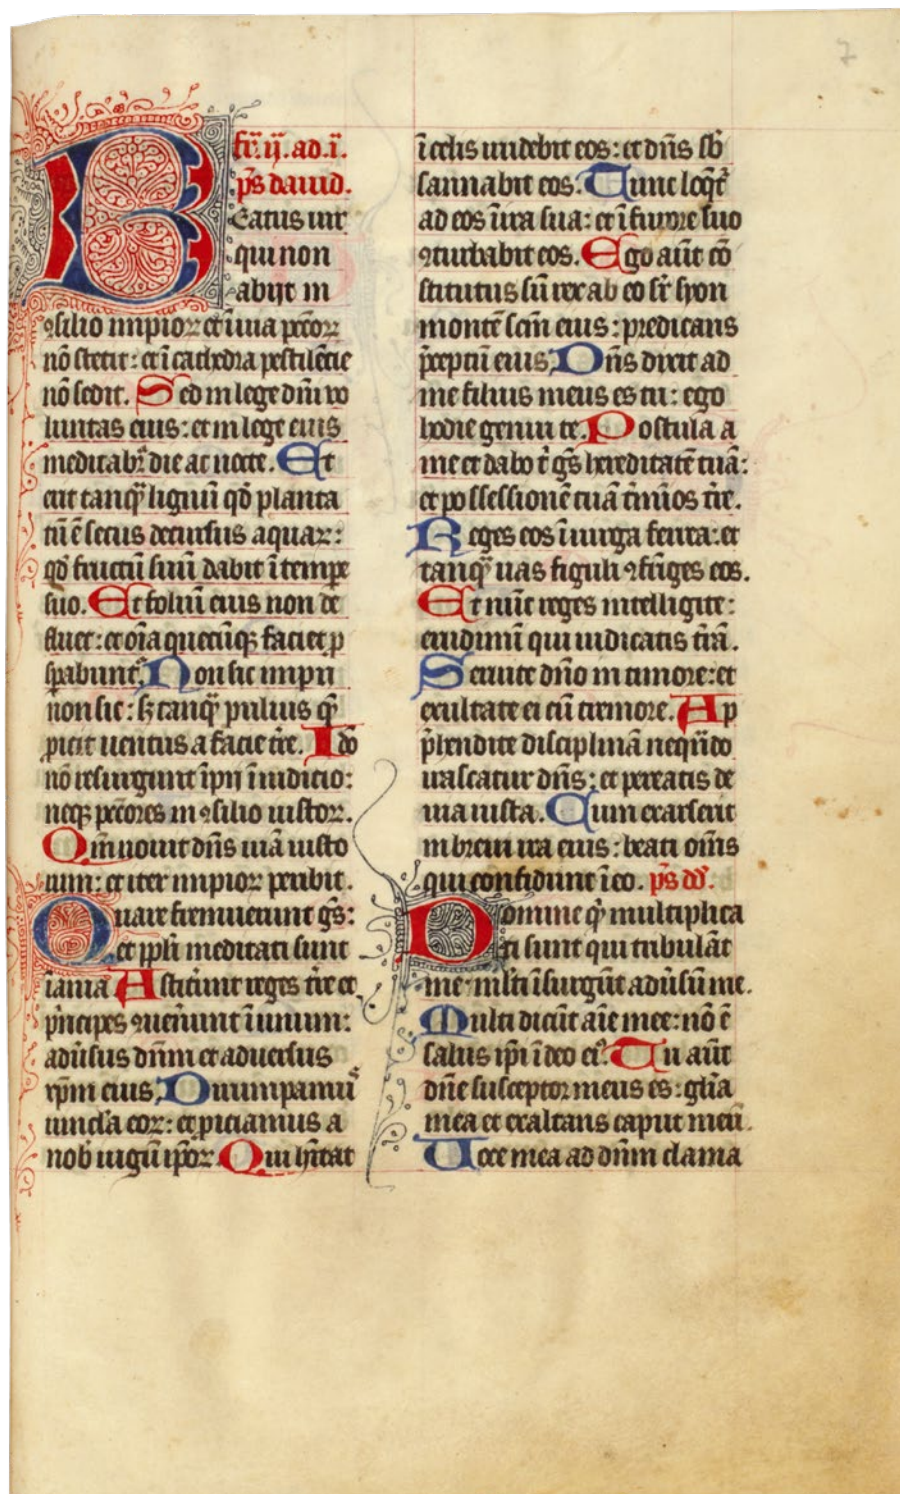 7
fr̄. ij. ad. i᷑.
p̄s dauid.
Beatus uir
qui non
abijt in
ꝯsilio impioꝝ et ī uia pctōꝝ
nō stetit: et ī cathedra pestilētie
nō sedit. Sed in lege dnī uo
luntas eius: et in lege eius
meditabr̄ die ac nocte. Et
erit tanqͣ̄ lignū qd̄ planta
tū ē secus decursus aquaꝝ:
qd̄ fructū suū dabit ī tempe
suo. Et foliū eius non de
fluet: et oīa quecūqꝫ faciet ꝓ
spabunt᷑. Non sic impii
non sic: sꝫ tanqͣ̄ puluis qͣ̄
ꝓicit uentus a facie tr̄e. Ido
nō resurgunt īpii ī iudicio:
neqꝫ pctōres in ꝯsilio iustoꝝ.
Qm̄ nouit dn̄s uiā iusto
rum: et iter impioꝝ peribit.
Quare fremuerunt gn̄s:
et ppl̄i meditati sunt
īania Astiterūt reges tr̄e et
p̄ncipes ꝯuener̄unt ī unum:
adūsus dn̄m et aduersus
xp̄m eius. Dirumpamꝰ
uincl̄a eoꝝ: et ꝓiciamus a
nob̄ iugū ip̄oꝝ Qui hītat
ī celis irridebit eos: et dn̄s sb̄
sannabit eos. Tunc loqt᷑
ad eos ī ira sua: et ī furore suo
ꝯturbabit eos. Ego aūt cō
stitutus sū rex ab eo sr̄ syon
montē sc̄m eius: predicans
p̄ceptū eius. Dn̄s dixit ad
me filius meus es tu: ego
hodie genui te. Postula a
me et dabo t᷑ gn̄s hereditatē tuā:
et possessionē tuā t̄mīos tr̄e.
Reges eos ī uirga ferrea: et
tanqͣ̄ uas figuli ꝯfrīges eos.
Et nūc reges intelligite:
erudimī qui iudicatis tr̄ā.
Seruite dn̄o in timore: et
exultate ei cū tremore. Ap
p̄hendite disciplinā neqn̄do
irascatur dn̄s: et pereatis de
uia iusta. Cum exarserit
in breui ira eius: beati om̄s
qui confidunt ī eo. p̄s dd̄.
Domine qͥd multiplica
ti sunt qui tribulāt
me: ml̄ti īsurgūt adūsū me.
Multi dicūt aīe mee: nō ē
salus ipī ī deo eiꝰ. Tu aūt
dn̄e susceptor meus es: gl̄ia
mea et exaltans caput meū.
Uoce mea ad dn̄m clama